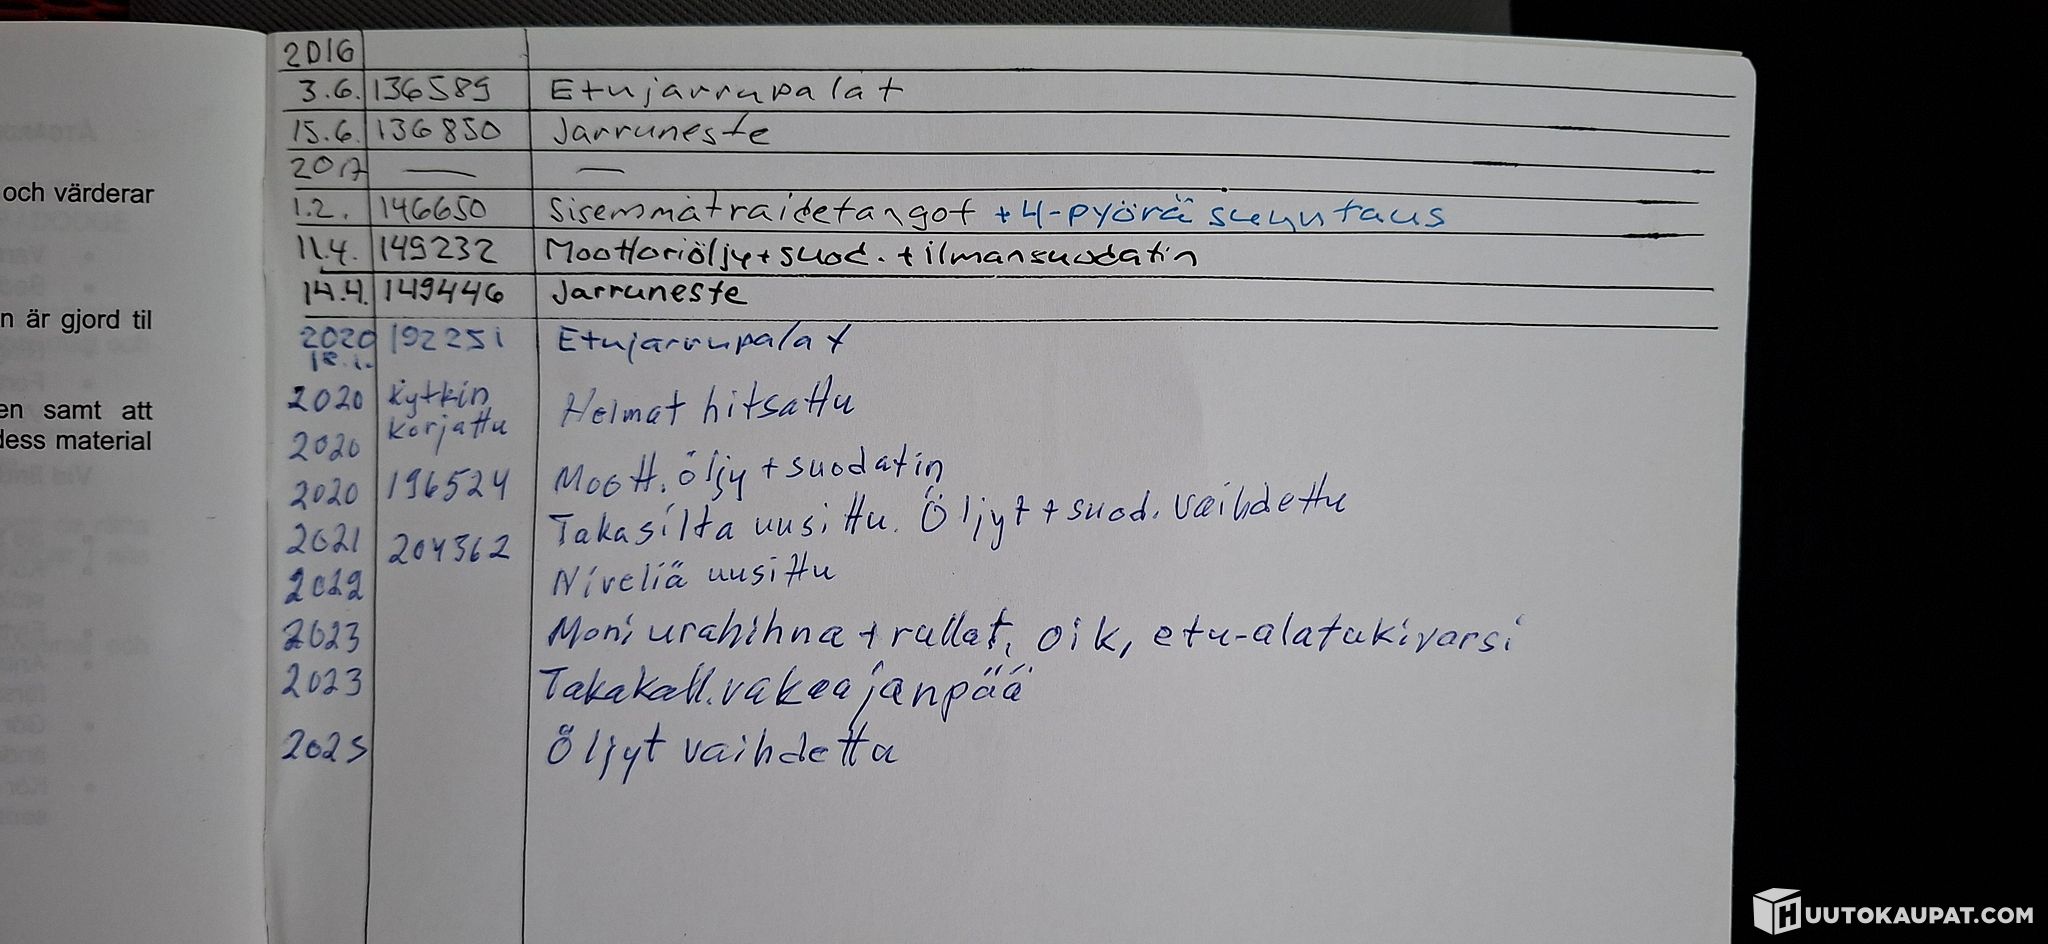 och värderar
n är gjord til
en samt att
dess material
2016
3.6. 136589 Etujarrupalat
15.6. 136850 Jarruneste
2017 — —
1.2. 146650 Sisemmätraidetangot + 4-pyörä suuntaus
11.4. 149232 Moottoriöljy + suod. + ilmansuodatin
14.4. 149446 Jarruneste
2020 192251 Etujarrupalat
2020 Kytkin korjattu Helmat hitsattu
2020
2020 196524 Moott. öljy + suodatin
2021 204362 Takasilta uusittu. Öljyt + suod. vaihdettu
2022 Niveliä uusittu
2023 Moniurahihna + rullat, oik, etu-alatukivarsi
2023 Takakall.vakaajanpää
2025 Öljyt vaihdettu
HUUTOKAUPAT.COM